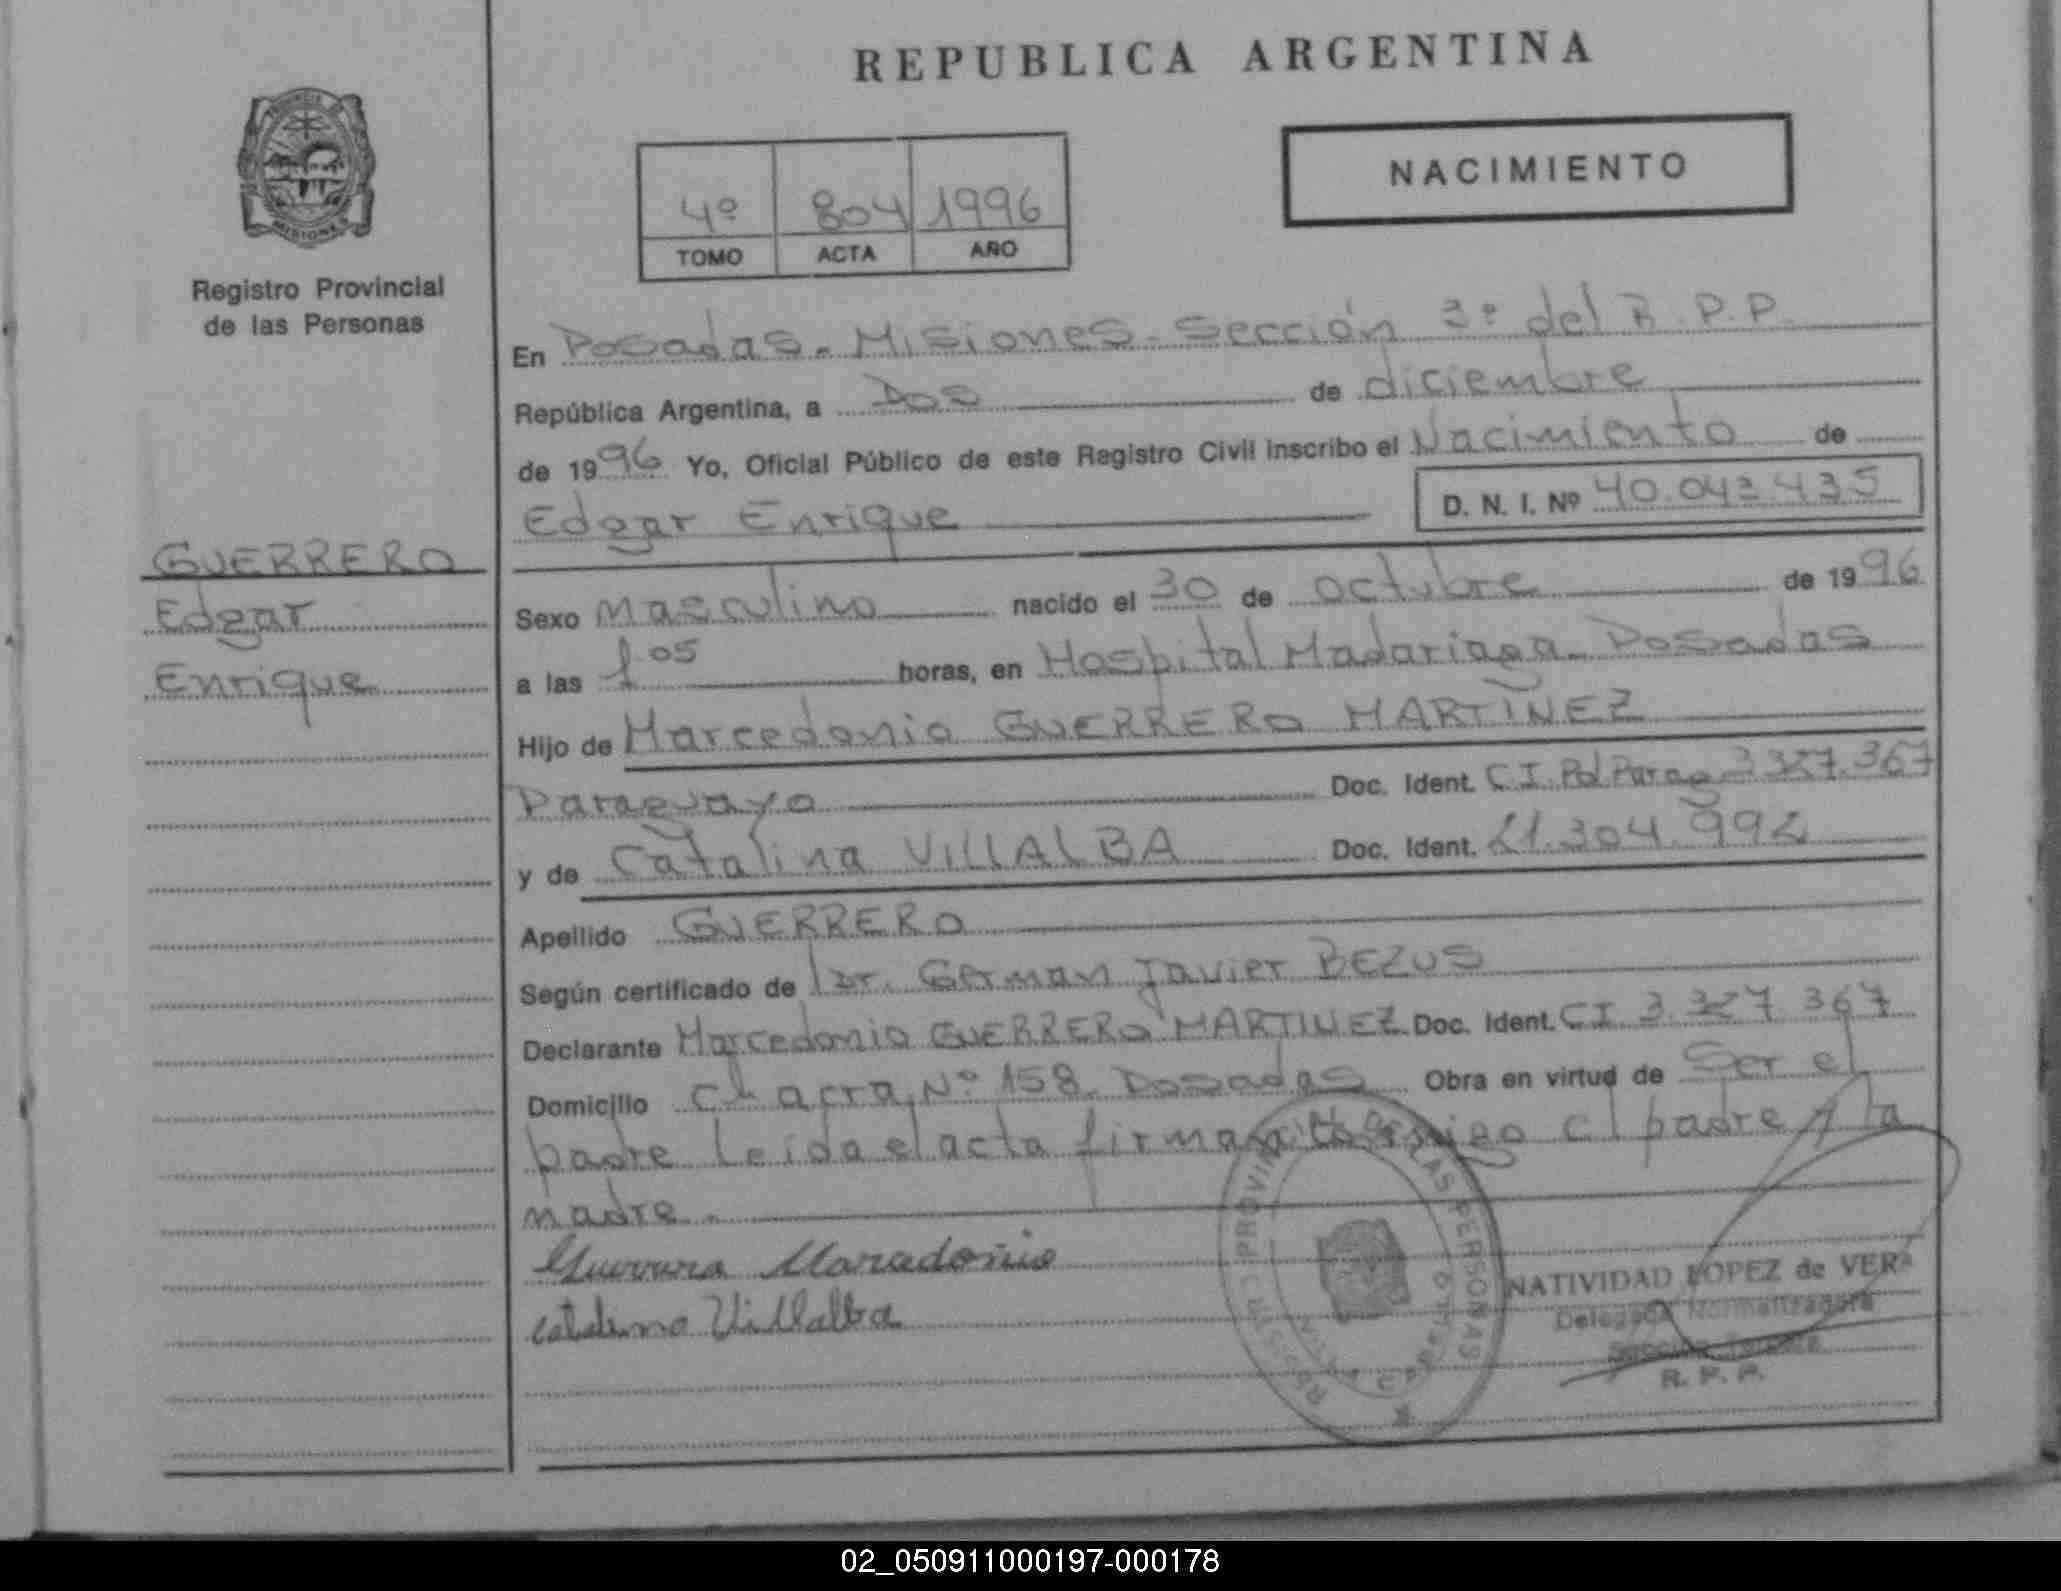 REPUBLICA ARGENTINA
NACIMIENTO
4º 804 1996
TOMO ACTA AÑO
PROVINCIA DE
MISIONES
Registro Provincial
de las Personas
En Posadas - Misiones - Sección 3º del R.P.P.
República Argentina, a Dos de diciembre
de 1996 Yo, Oficial Público de este Registro Civil inscribo el Nacimiento de
Edgar Enrique D. N. I. Nº 40.043.435
GUERRERO
Edgar
Enrique
Sexo masculino nacido el 30 de octubre de 1996
a las 1.05 horas, en Hospital Madariaga - Posadas
Hijo de Marcedonio GUERRERO MARTINEZ
Paraguayo Doc. Ident. C.I. Pol Parag 3327.367
y de Catalina VILLALBA Doc. Ident. 21.304.992
Apellido GUERRERO
Según certificado de Dr. German Javier BEZUS
Declarante Marcedonio GUERRERO MARTINEZ Doc. Ident. CI 3.327.367
Domicilio Chacra Nº 158 - Posadas Obra en virtud de Ser el
padre leida el acta firman conmigo el padre y la
madre.
Catalina Villalba
NATIVIDAD LOPEZ de VERA
Delegada Normalizadora
R. P. P.
02_050911000197-000178